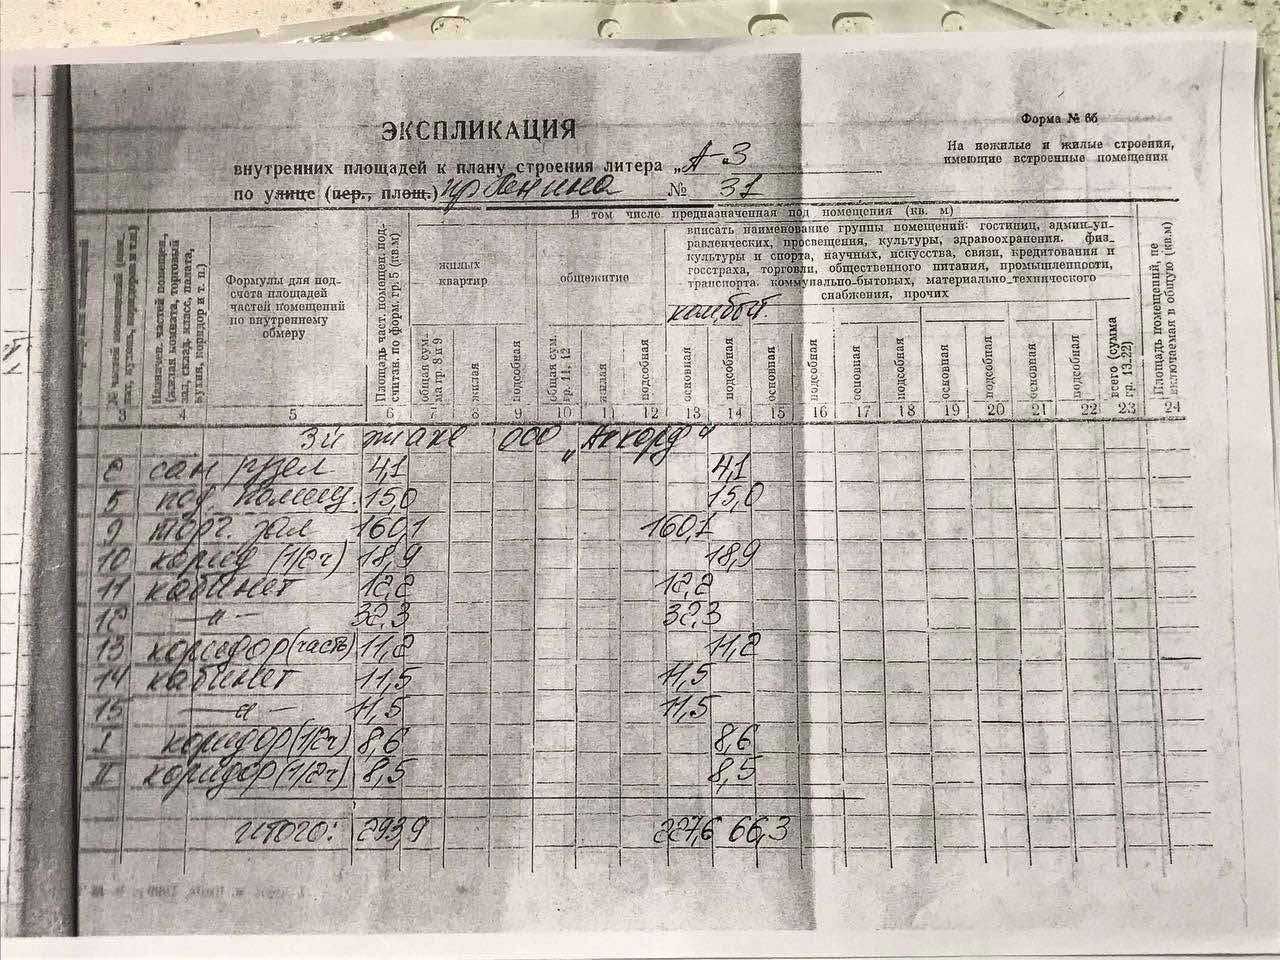 ЭКСПЛИКАЦИЯ
Форма № 6б
На нежилые и жилые строения,
имеющие встроенные помещения
внутренних площадей к плану строения литера „А-3
по улице (пер., площ.) пр Ленина № 31
В том числе предназначенная под помещения (кв. м)
вписать наименование группы помещений: гостиниц, админ-уп-
равленческих, просвещения, культуры, здравоохранения. физ-
культуры и спорта, научных, искусства, связи, кредитования и
госстраха, торговли, общественного питания, промышленности,
транспорта. коммунально-бытовых, материально-технического
снабжения, прочих
комбыт.
жилых
квартир
общежитие
Формулы для под-
счета площадей
частей помещений
по внутреннему
обмеру
Площадь част. помещен. под-
считан. по форм. гр. 5 (кв.м)
общая сум.
ма гр. 8 и 9
жилая
подсобная
общая сум.
гр. 11, 12
жилая
подсобная
основная
подсобная
основная
подсобная
основная
подсобная
основная
подсобная
основная
подсобная
всего (сумма
гр. 13-22)
Площадь помещений, не
включаемая в общую (кв.м)
3 4 5 6 7 8 9 10 11 12 13 14 15 16 17 18 19 20 21 22 23 24
3й этаж ООО „Аккорд"
2 сан/узел 4,1 4,1
5 под. помещ. 15,0 15,0
9 торг. зал 160,1 160,1
10 корид (1/2ч) 18,9 18,9
11 кабинет 12,2 12,2
12 —"— 32,3 32,3
13 коридор (часть) 11,2 11,2
14 кабинет 11,5 11,5
15 —"— 11,5 11,5
I коридор (1/2ч) 8,6 8,6
II коридор (1/2ч) 8,5 8,5
Итого: 293,9 227,6 66,3